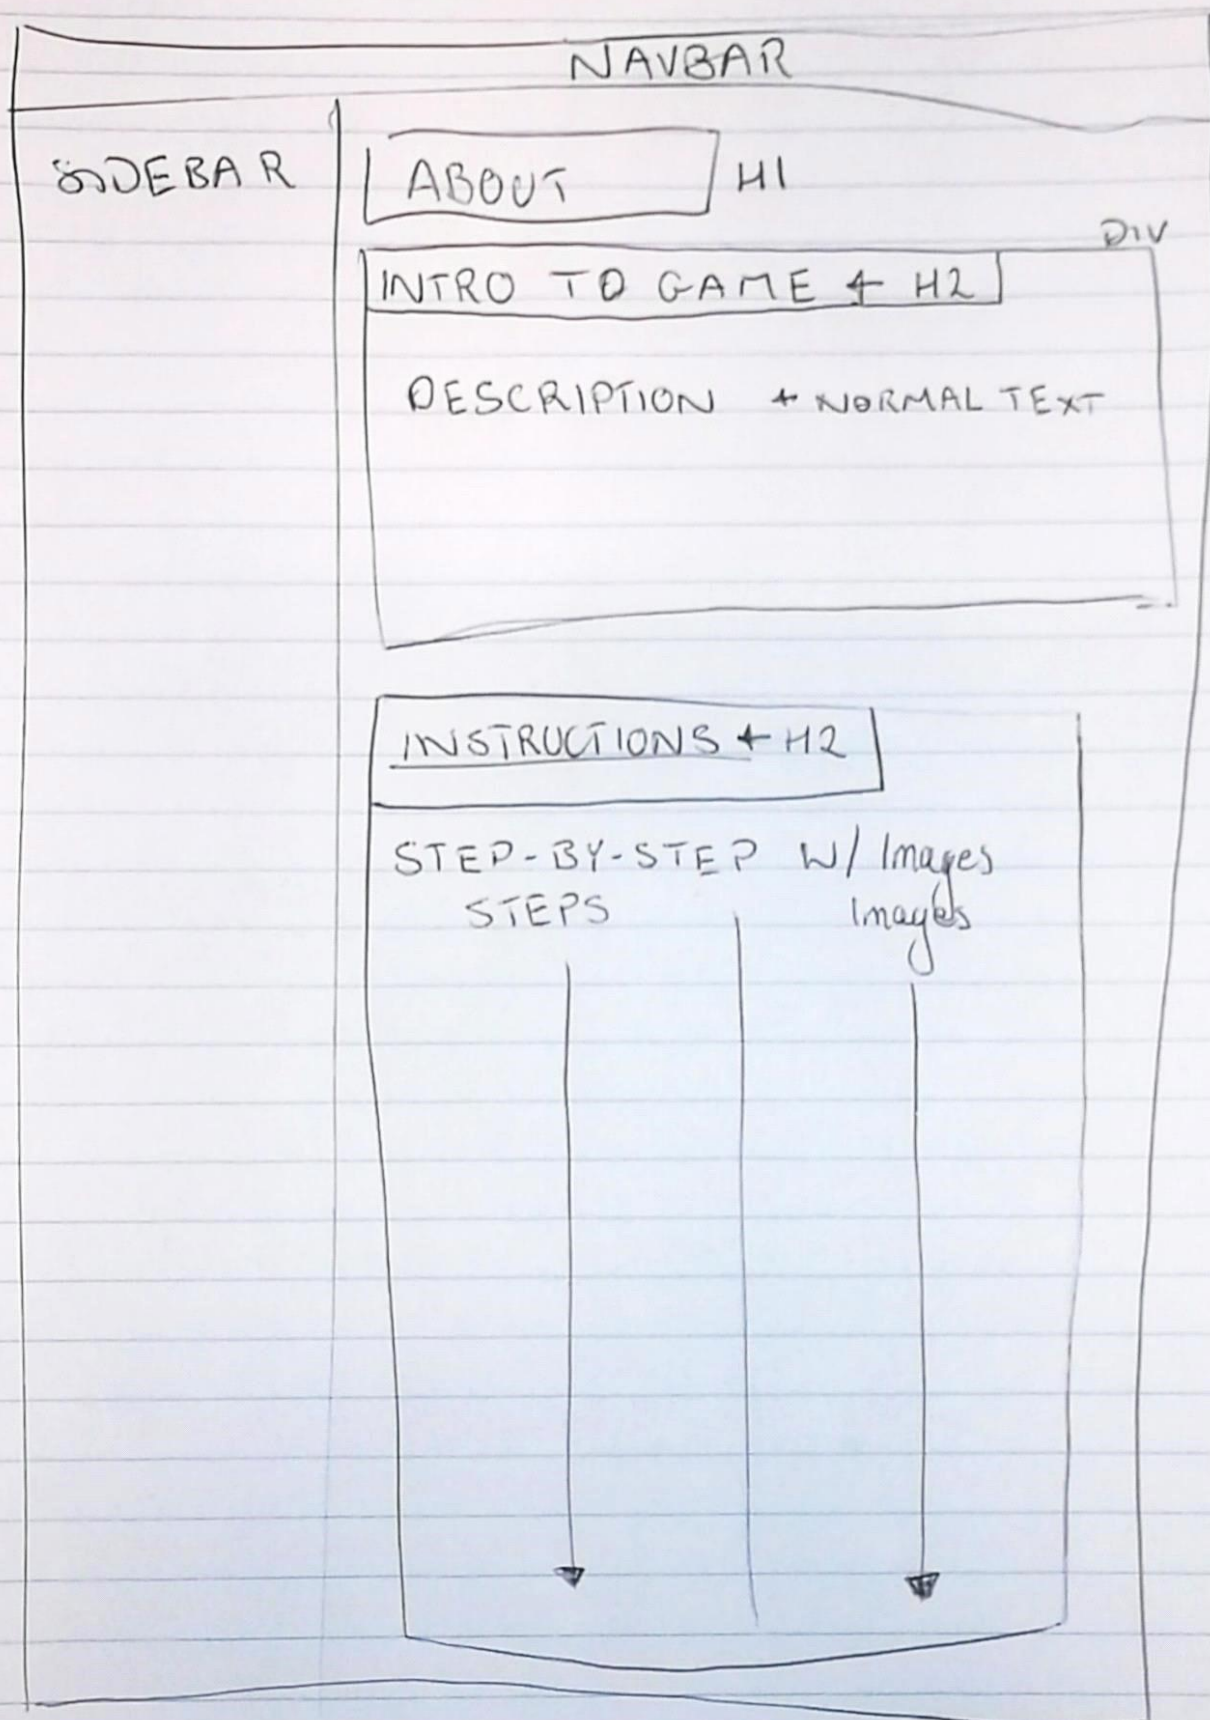 NAVBAR
SIDEBAR
ABOUT H1
DIV
INTRO TO GAME ← H2
DESCRIPTION ← NORMAL TEXT
INSTRUCTIONS ← H2
STEP-BY-STEP W/ Images
STEPS Images